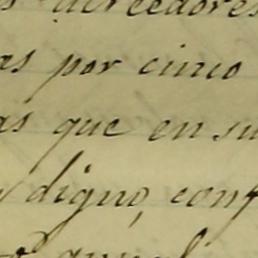 acreedores
as por cinco
as que en su
digno, conf